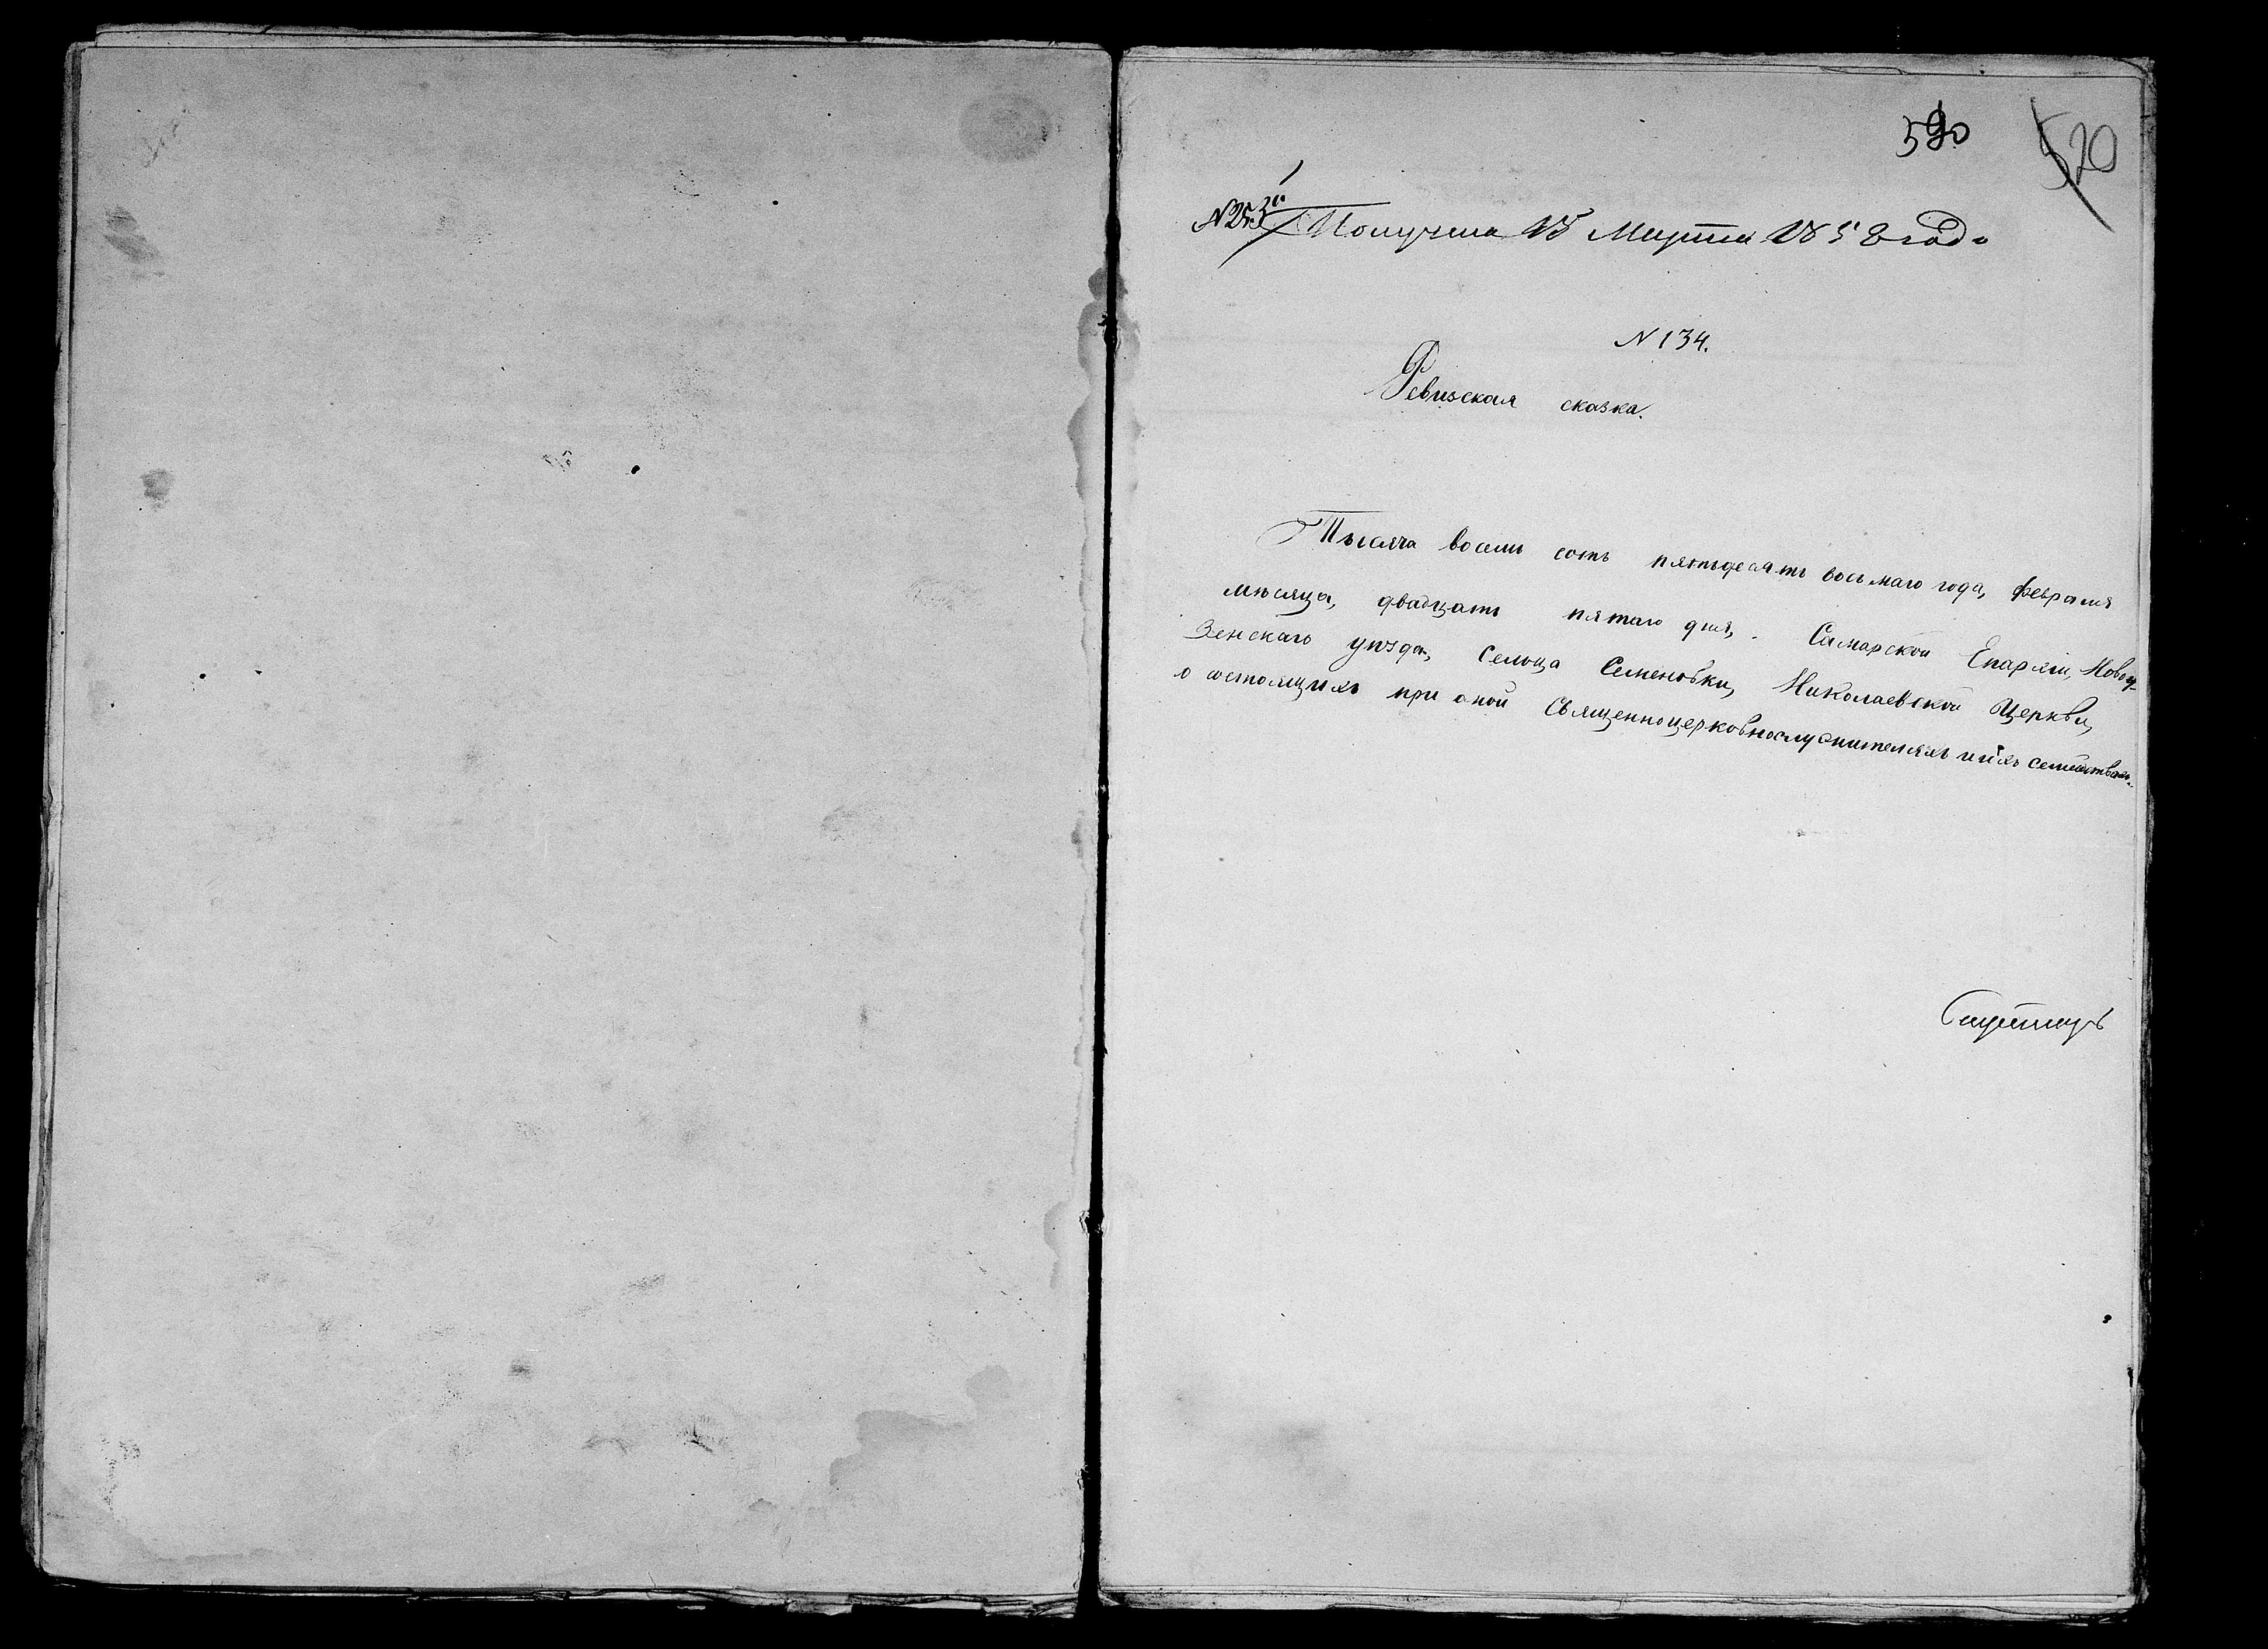 590
520
№ 253 Получена 15 Марта 1858 года
N 134.
Ревизская сказка.
Тысяча восемь сотъ пятьдесятъ восьмаго года, февраля
мѣсяца, двадцать пятаго дня, Самарской Епархіи, Новоу-
зенскаго уѣзда, Сельца Семеновки, Николаевской Церкви,
о состоящихъ при оной Священноцерковнослужителяхъ и ихъ семействахъ.